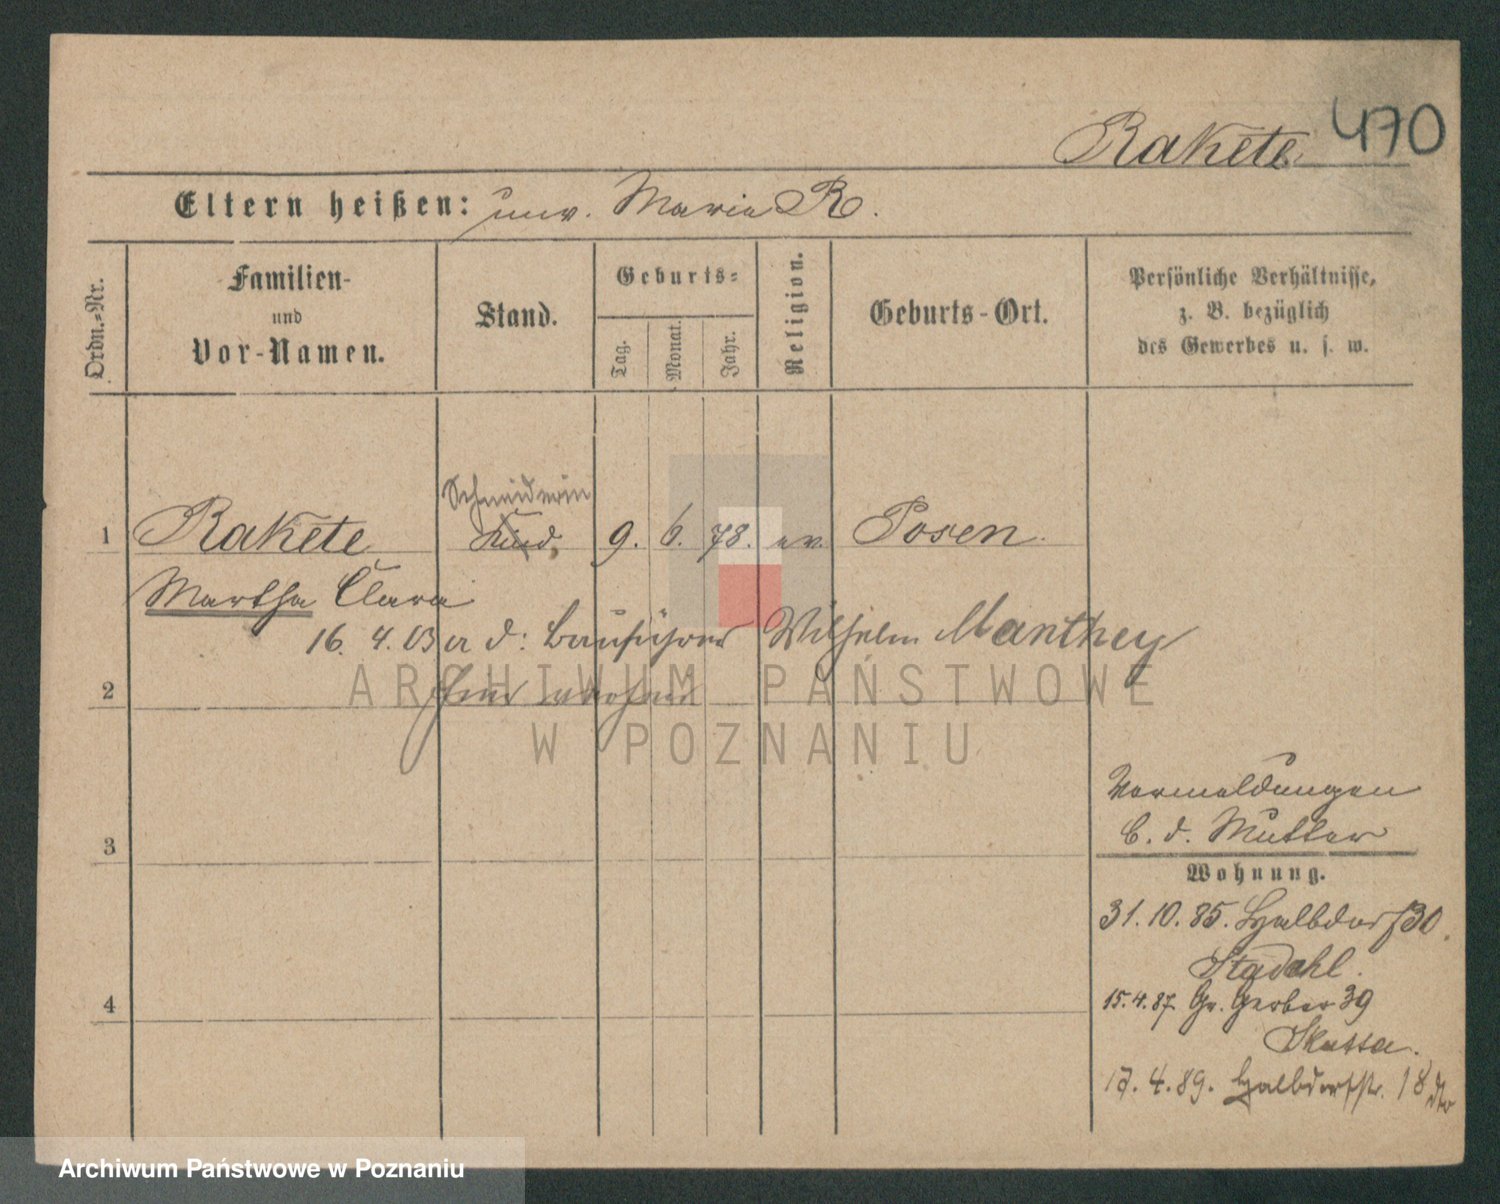 470
Rakete
Eltern heißen: unv. Maria R.
Ordn.-Nr.
Familien-
und
Vor-Namen.
Stand.
Geburts-
Tag.
Monat.
Jahr.
Religion.
Geburts-Ort.
Persönliche Verhältnisse,
z. B. bezüglich
des Gewerbes u. s. w.
Schneiderin
1 Rakete Kind, 9. 6. 78. ev. Posen.
Martha Clara
16. 4. 03 a d: Bauführer Wilhelm Manthey
2
3
4
Vermeldungen
b. d. Mutter
Wohnung.
31. 10. 85. Halbdorf 30.
15. 4. 87. Gr. Gerber 39
Skutta.
17. 4. 89. Halbdorfstr. 18
ARCHIWUM PAŃSTWOWE
W POZNANIU
Archiwum Państwowe w Poznaniu